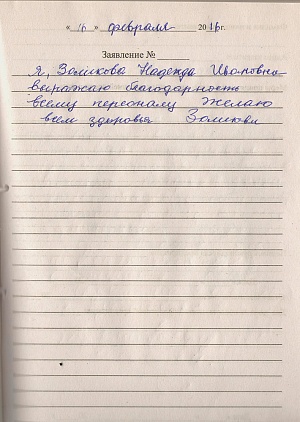 « 16 » февраля 2016г.
Заявление №
Я, Золикова Надежда Ивановна
выражаю благодарность
всему персоналу желаю
всем здоровья Золикова